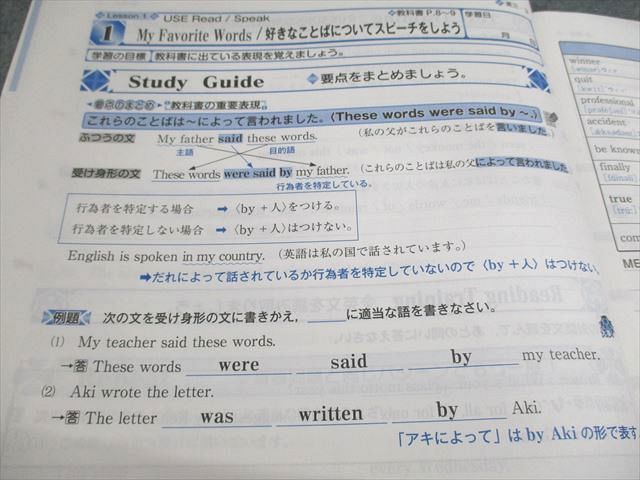 Lesson 1 USE Read / Speak
教科書 P.8~9
学習日
1 My Favorite Words / 好きなことばについてスピーチをしよう
月
学習の目標 教科書に出ている表現を覚えましょう。
Study Guide
要点をまとめましょう。
要点のまとめ 教科書の重要表現
これらのことばは~によって言われました。〈These words were said by ~.〉
ふつうの文 My father said these words. (私の父がこれらのことばを言いました
主語 目的語
受け身形の文 These words were said by my father. (これらのことばは私の父によって言われました
行為者を特定している。
行為者を特定する場合 ➡ 〈by + 人〉をつける。
行為者を特定しない場合 ➡ 〈by + 人〉はつけない。
English is spoken in my country. (英語は私の国で話されています。)
➡だれによって話されているか行為者を特定していないので〈by + 人〉はつけない
例題 次の文を受け身形の文に書きかえ、____に適当な語を書きなさい。
(1) My teacher said these words.
→答 These words were said by my teacher.
(2) Aki wrote the letter.
→答 The letter was written by Aki.
「アキによって」は by Aki の形で表す
winner
quit
professional
accident
be know
finally
true
com
ME